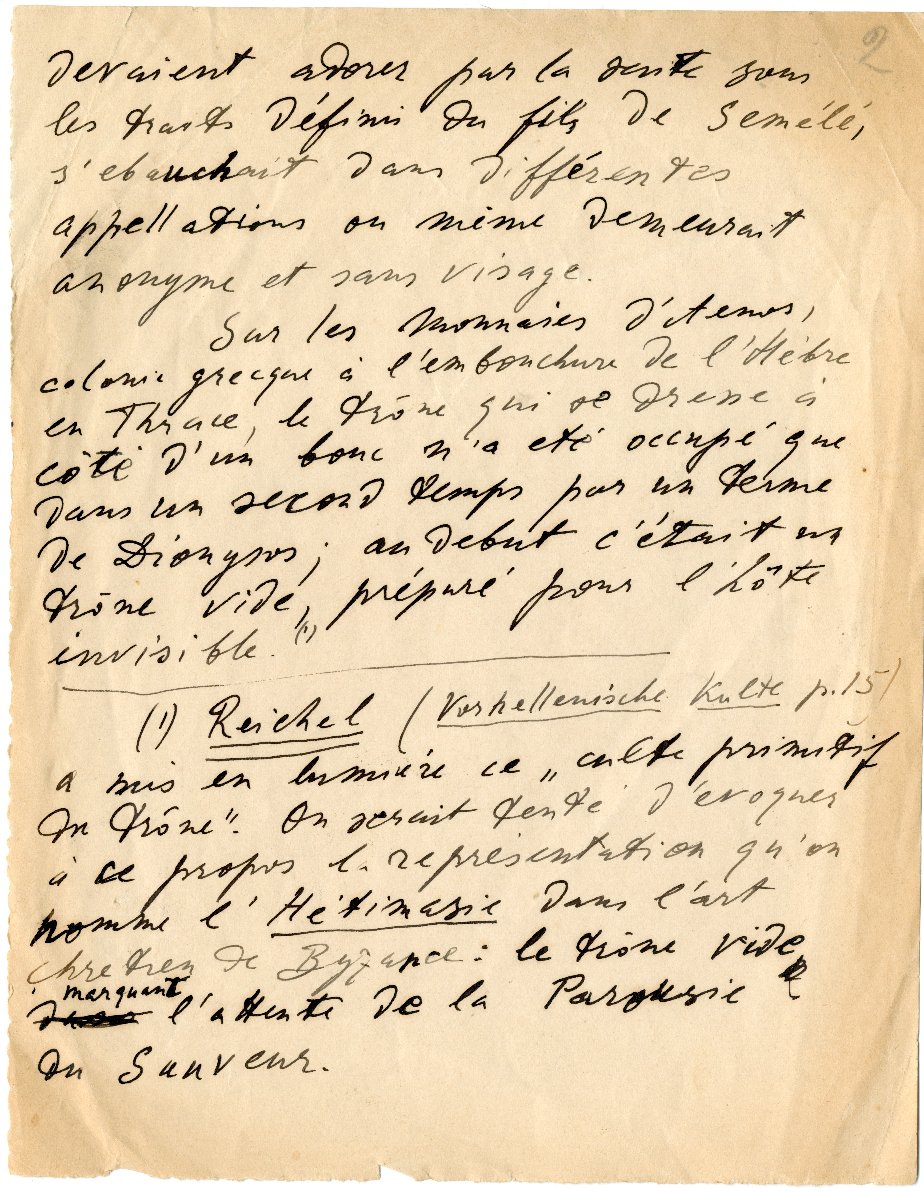 2
devaient adorer par la suite sous
les traits définis du fils de Semélé,
s'ebauchait dans différentes
appellations ou même demeurait
anonyme et sans visage.
Sur les monnaies d'Aenos,
colonie grecque à l'embouchure de l'Hèbre
en Thrace, le trône qui se dresse à
côté d'un bouc n'a eté occupé que
dans un second temps par un terme
de Dionysos ; au debut c'était un
trône vide, préparé pour l'hôte
invisible. (1)
(1) Reichel (Vorhellenische Kulte p.15)
a mis en lumière ce „culte primitif
du trône". On serait tenté d'evoquer
à ce propos la représentation qu'on
nomme l'Hétimasie dans l'art
chretien de Byzance : le trône vide,
marquant
l'attente de la Parousie
du Sauveur.